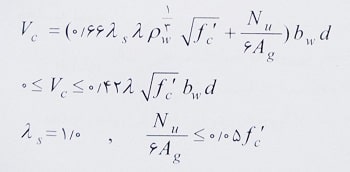 V_c = (۰/۶۶ λ_s λ ρ_w^{۱/۳} √f'_c + N_u/۶A_g) b_w d
۰ ≤ V_c ≤ ۰/۴۲ λ √f'_c b_w d
λ_s = ۱/۰ , N_u/۶A_g ≤ ۰/۰۵ f'_c